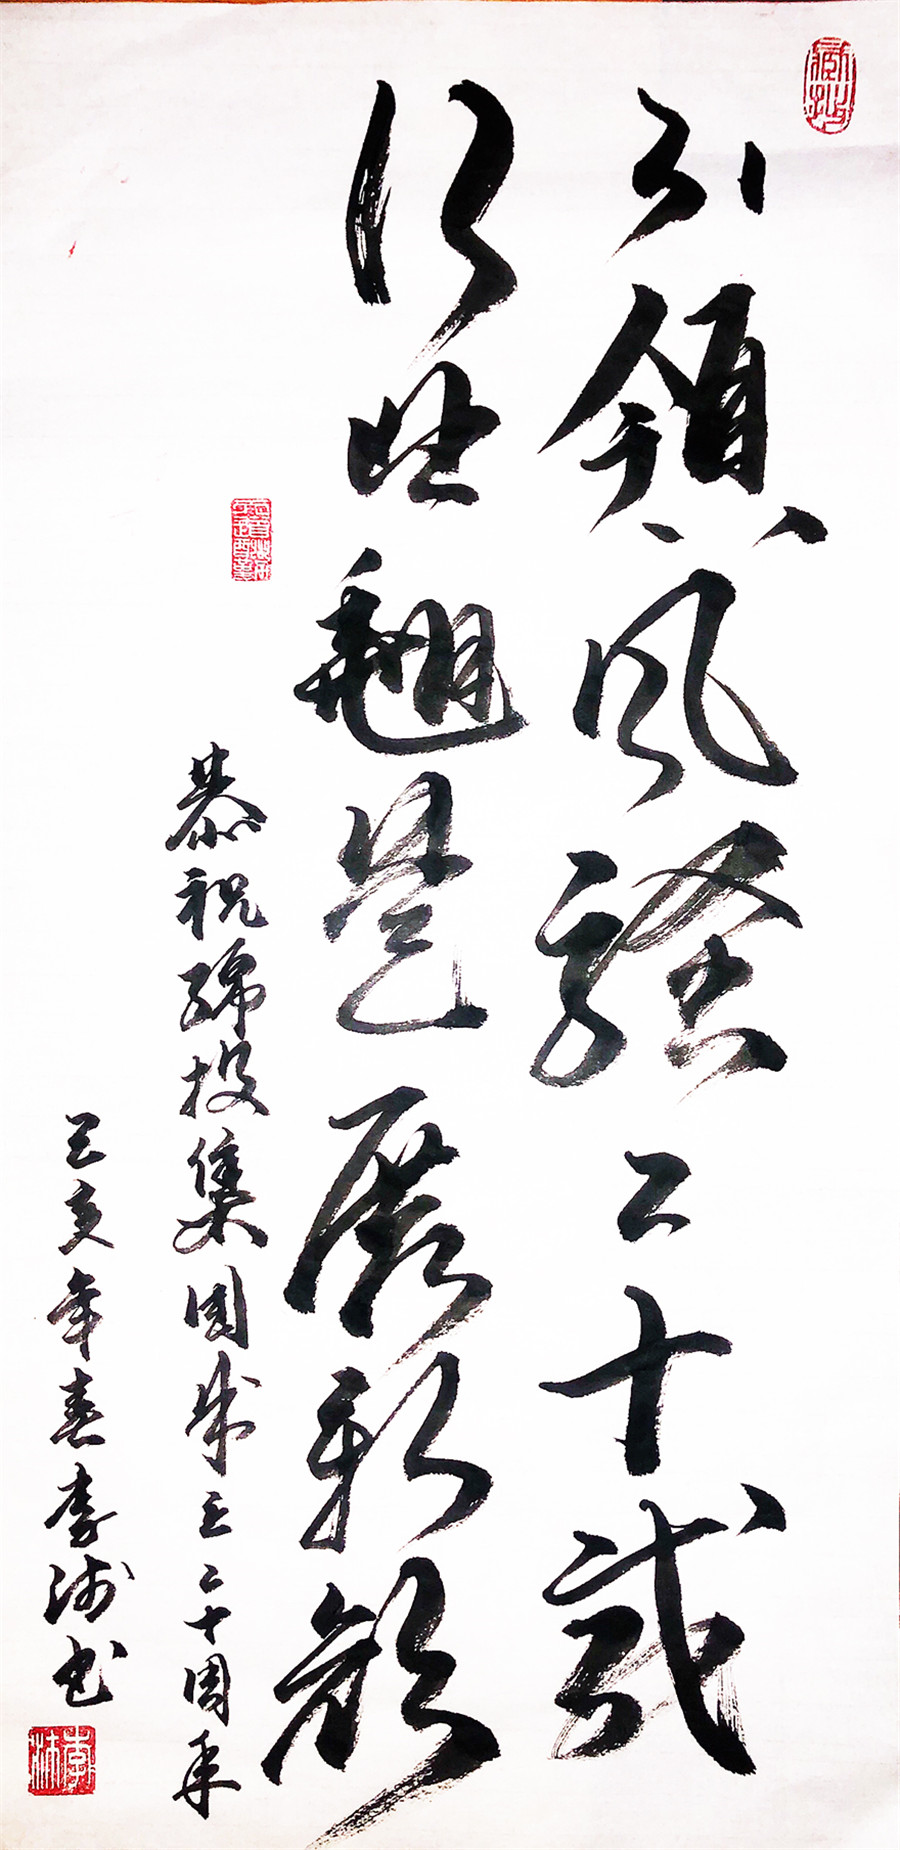 引领风骚二十载
行姿翘楚展新颜
恭祝绵投集团成立二十周年
己亥年春李沛书